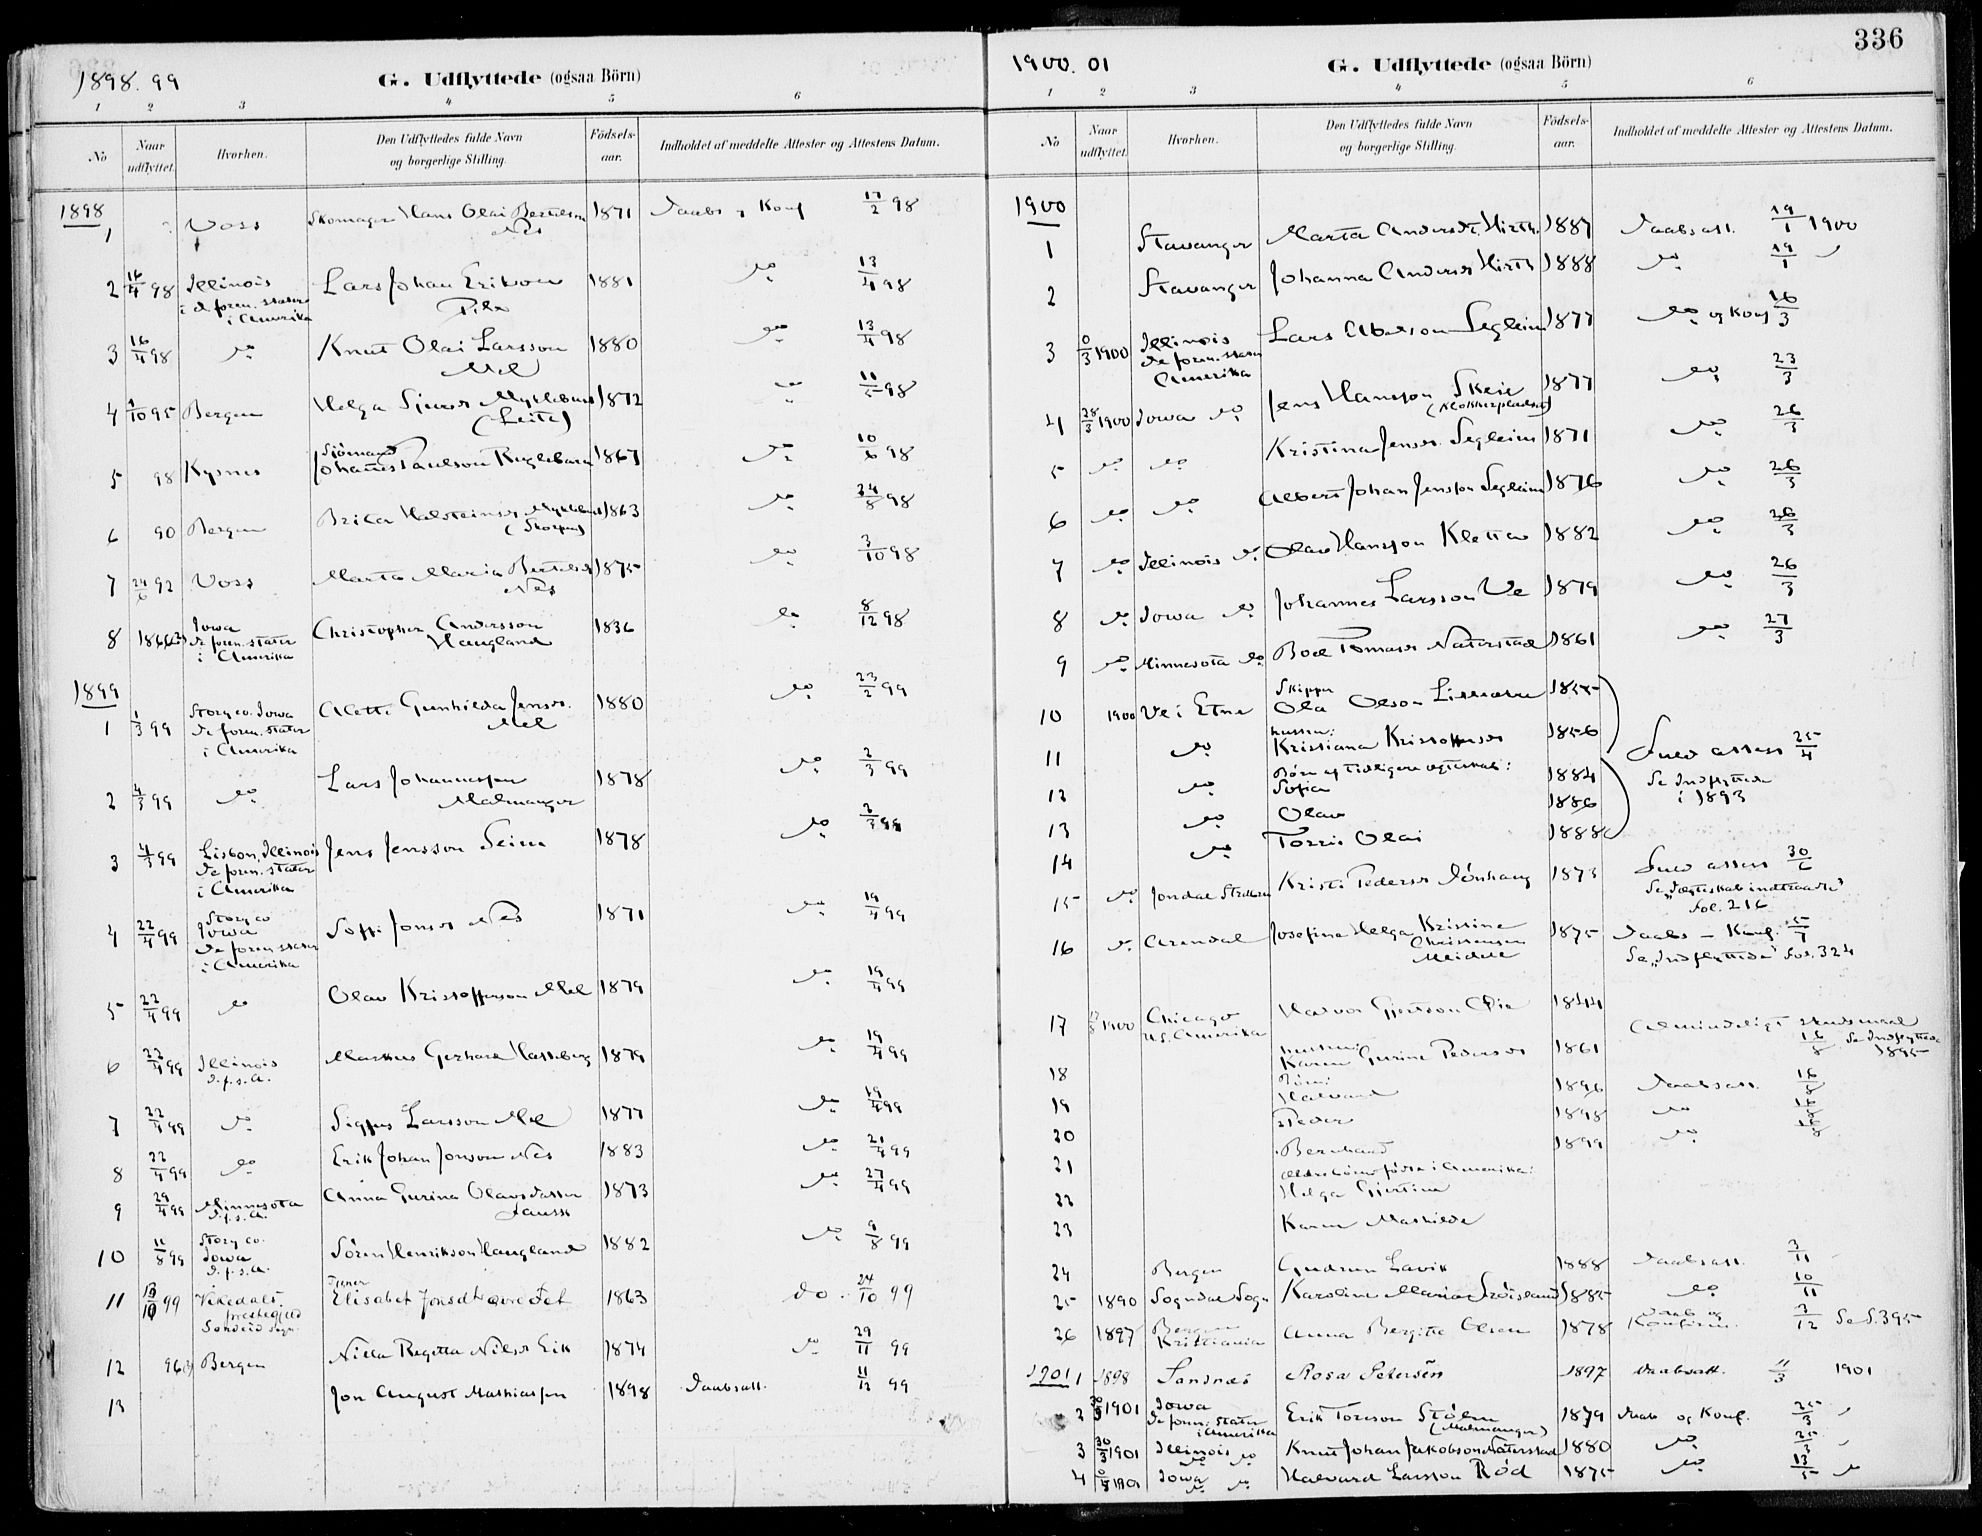 336
1898. 99
G. Udflyttede (ogsaa Börn)
1 2 3 4 5 6
No
Naar udflyttet.
Hvorhen.
Den Udflyttedes fulde Navn og borgerlige Stilling.
Födsels-aar.
Indholdet af meddelte Attester og Attestens Datum.
1898
1 Voss Skomager Hans Olai Bertelson Nes 1871 Daabs og Konf 17/2 98
2 16/4 98 Illinois i d. foren. stater i Amerika Lars Johan Erikson 1881 do 13/4 98
3 16/4 98 do Knut Olai Larsson Mel 1880 do 13/4 98
4 1/10 95 Bergen Helga Sjursd Myklebust (Leite) 1872 do 98
5 98 Sjömand Johannes Paulson 1867 do 10/6 98
6 90 Bergen Brita Halsteinsd 1863 do 24/8 98
7 24/6 92 Voss Marta Maria Bertelsd Nes 1875 do 3/10 98
8 1866 Iowa de foren. stater i Amerika Christopher Andersson Haugland 1836 do 8/12 98
1899
1 1/3 99 Story co. Iowa de foren. stater i Amerika Alette Gunhilda Jensd. Mel 1880 do 23/2 99
2 4/3 99 do Lars Johannessen Malmanger 1878 do 2/3 99
3 4/3 99 Lisbon, Illinois de foren. stater i Amerika Jens Jensson Seim 1878 do 2/3 99
4 22/4 99 Story co Iowa de foren stater i Amerika Soffi Jonsd Nes 1871 do 19/4 99
5 22/4 99 do Olav Kristofferson Mel 1879 do 19/4 99
6 22/4 99 Illinois d.f.s.A. Markus Gerhard Hasseberg 1879 do 19/4 99
7 22/4 99 do Larsson Mel 1877 do 19/4 99
8 22/4 99 do Erik Johan Jonson Nes 1883 do 21/4 99
9 29/4 99 Minnesota d.f.s.A. Anna Gurina Olavsdatter 1873 do 27/4 99
10 11/8 99 Story co. Iowa d.f.s.A. Sören Henrikson Haugland 1882 do 9/8 99
11 99 Vikedals prestegjeld Tjener Elisabet Jonsd 1863 do. 24/10 99
12 96 Bergen Nilla Regetta Nilsd Eik 1874 do 29/11 99
13 Jon August Mathiasen 1898 Daabsatt. 11/12 99
1900. 01
G. Udflyttede (ogsaa Börn)
1 2 3 4 5 6
No
Naar udflyttet.
Hvorhen.
Den Udflyttedes fulde Navn og borgerlige Stilling.
Födsels-aar.
Indholdet af meddelte Attester og Attestens Datum.
1900
1 Stavanger Marta Andersd. Hirth. 1887 Daabsatt. 19/1 1900
2 Stavanger Johanna Andersd Hirth 1888 do 19/1
3 1900 Illinois de foren. stater Amerika Lars Abelson Segleim 1877 do og Konf 16/3
4 28/3 1900 Iowa do Jens Hansson Skeie (Klokkerpladset) 1877 do 23/3
5 do do Kristina Jensd. Segleim 1871 do 26/3
6 do do Albert Johan Jensson Segleim 1876 do 26/3
7 do Illinois do Olav Hansson Kletta 1882 do 26/3
8 do Iowa do Johannes Larsson Ve 1879 do 26/3
9 do Minnesota do Boel Tomasd Naterstad 1861 do 27/3
10 1900 Ve i Etne Skipper Ola Olson 1855
11 do hustru: Kristiana Kristoffersd 1856
12 do Börn af tidligere egteskab: Sofia 1884
13 do Olav 1886
14 do Torris Olai 1888
25/4 Se Indflyttede i 1893
15 do Jondal Kristi Pedersd Dönhaug 1873 30/6 Se „Egteskab indtraadte" Fol. 216
16 do Arendal Josefine Helga Kristine Christensen 1875 Daabs – Konf. 5/7 Se „Indflyttede" Fol. 324
17 1900 Chicago U.S. Amerika Halvor Gjertson 1844 Almindeligt skudsmaal 16/8 Se Indflyttede 1895
18 hustru: Karen Gurine Pedersd 1861
19 Börn: Halvard 1896 Daabsatt. 16/8
20 Peder 1898 do 16/8
21 Bernhard 1899 do
22 ældre börn födte i Amerika: Helga Gjertine
23 Karen Mathilde
24 Bergen Gudrun Lavik 1888 Daabsatt. 3/11
25 1890 Sogndal Sogn Karoline Maria 1885 do 10/11
26 1897 Bergen Kristiania Anna Bergitte Olsen 1878 Daab og Konfirm. 3/12 Se S. 395
1901 1 1898 Sandnes Rosa Petersen 1897 Daabsatt. 11/3 1901
2 1901 Iowa de foren. stater i Amerika Erik Torsson Stölen (Malmanger) 1879 Daab og Konf. 25/3
3 30/3 1901 Illinois do do Knut Johan Jakobson Naterstad 1880 do 25/3
4 1901 Iowa do do Halvard Larsson Röd 1875 do 13/5